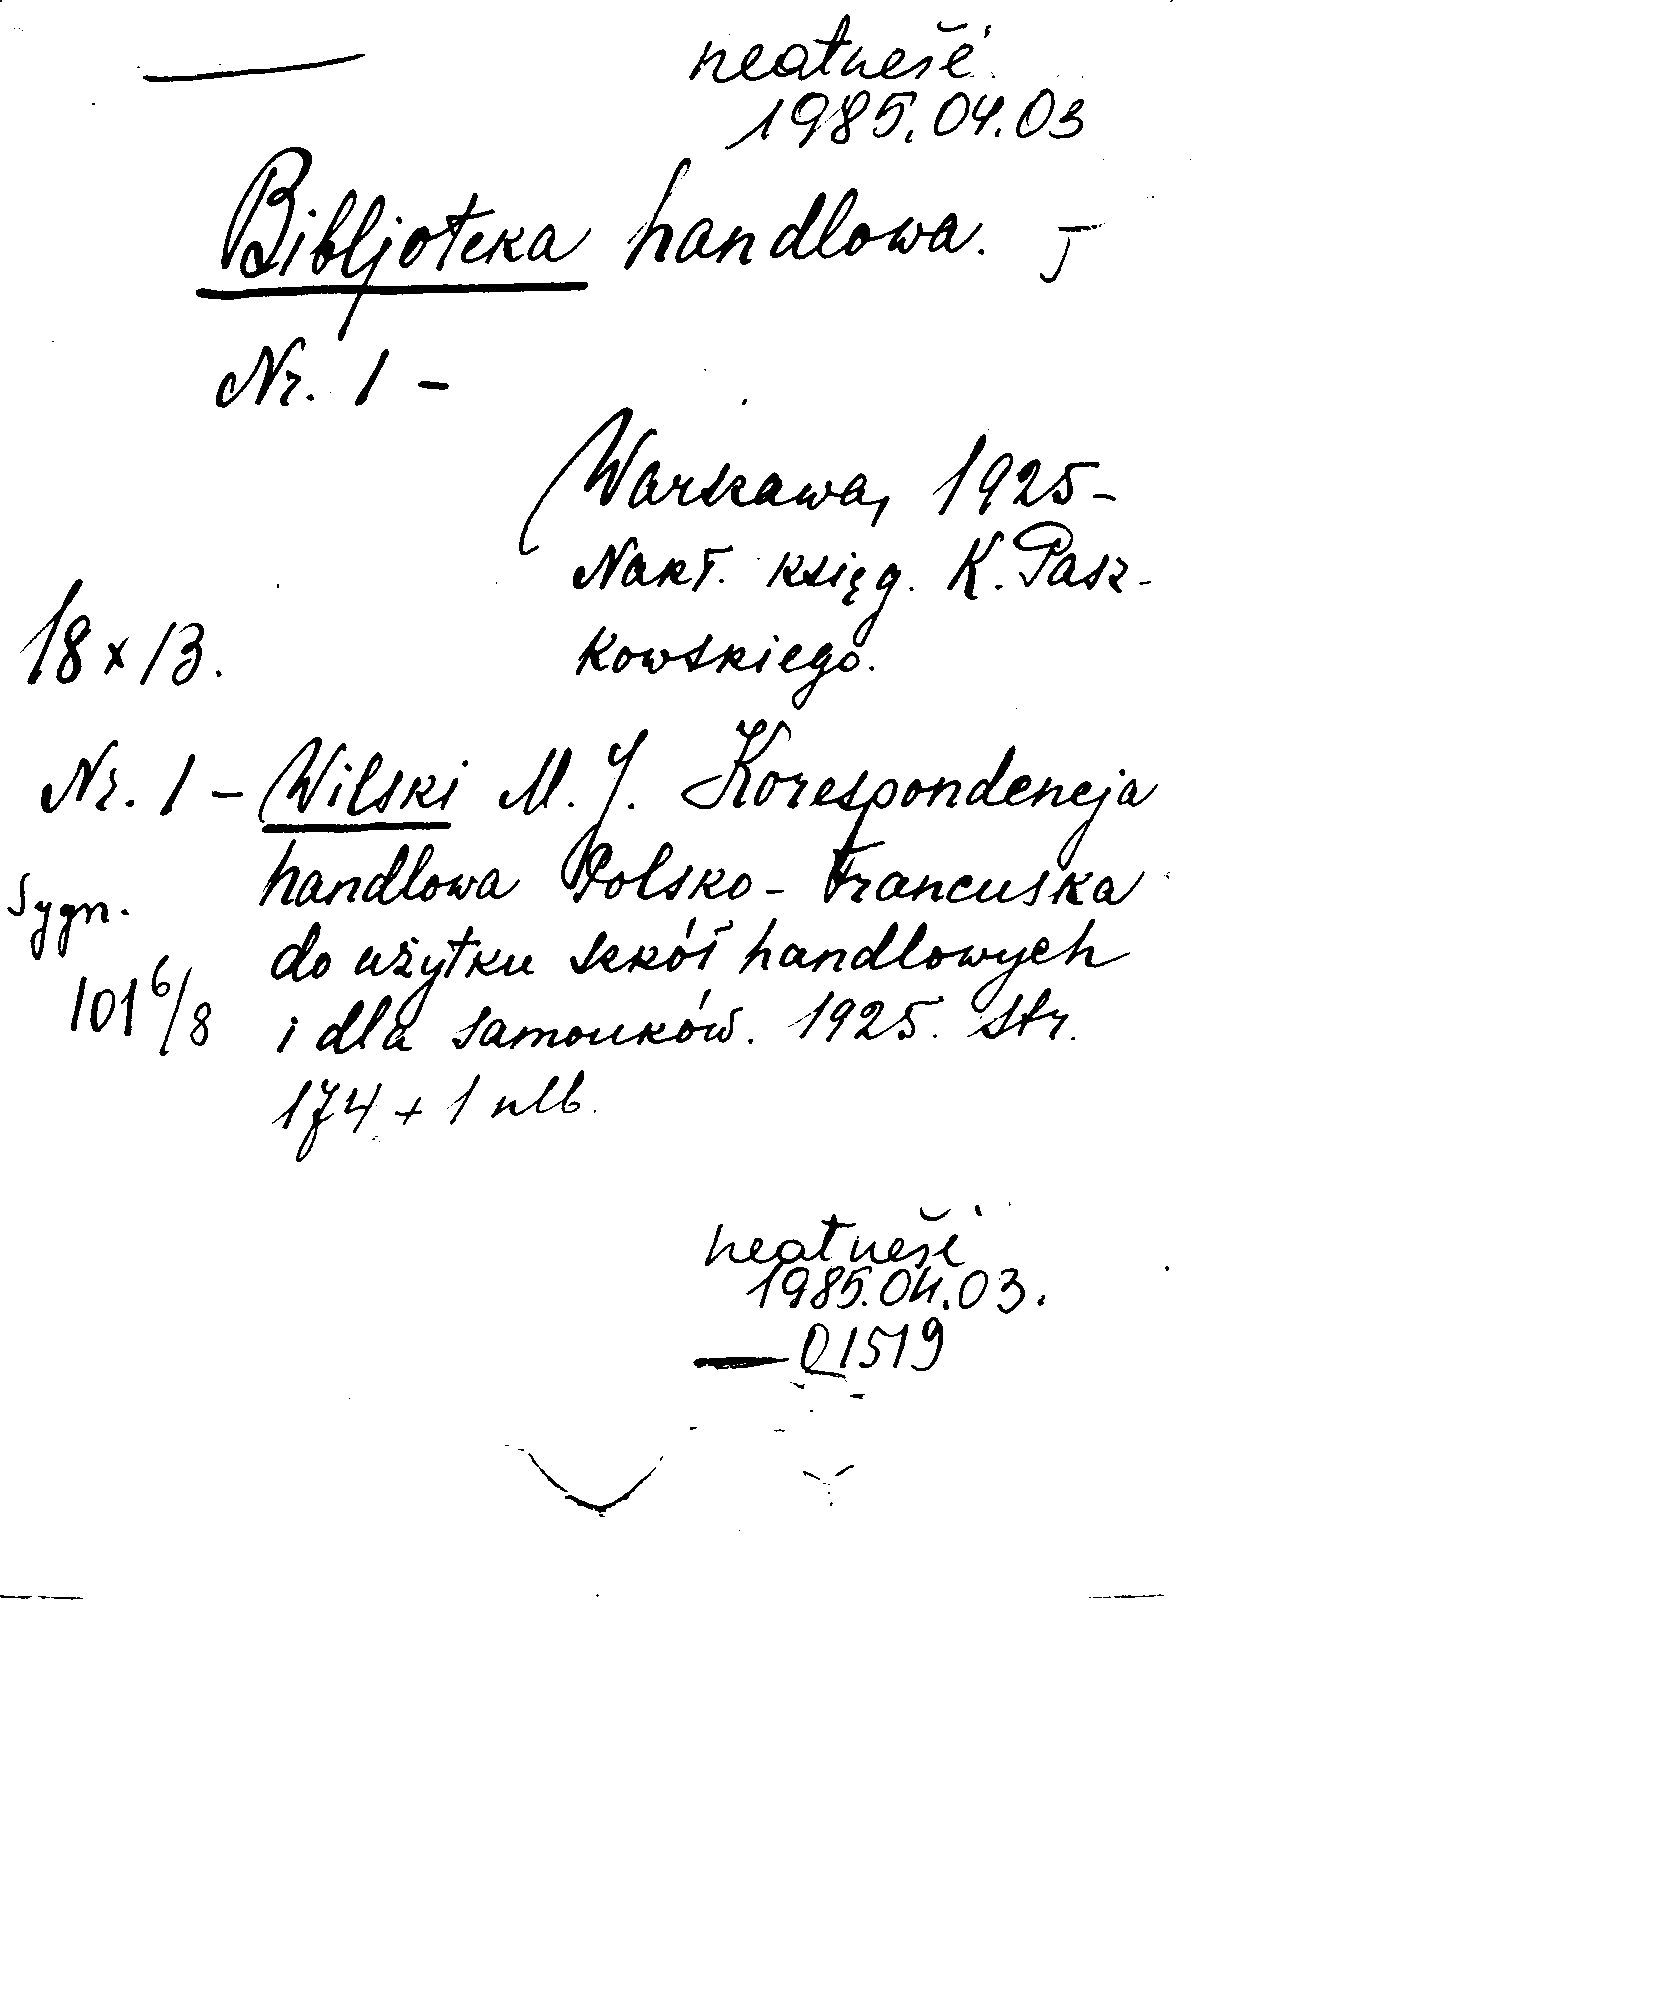 neatnešė
1985.04.03
Bibljoteka handlowa.
Nr. 1 -
Warszawa, 1925-
Nakł. księg. K. Pasz-
kowskiego.
18 x 13.
Nr. 1 - Wilski M. J. Korespondencja
handlowa Polsko-Francuska
do użytku szkół handlowych
i dla samouków. 1925. Str.
174 + 1 nlb.
Sygn.
101 6/8
neatnešė
1985.04.03.
01519